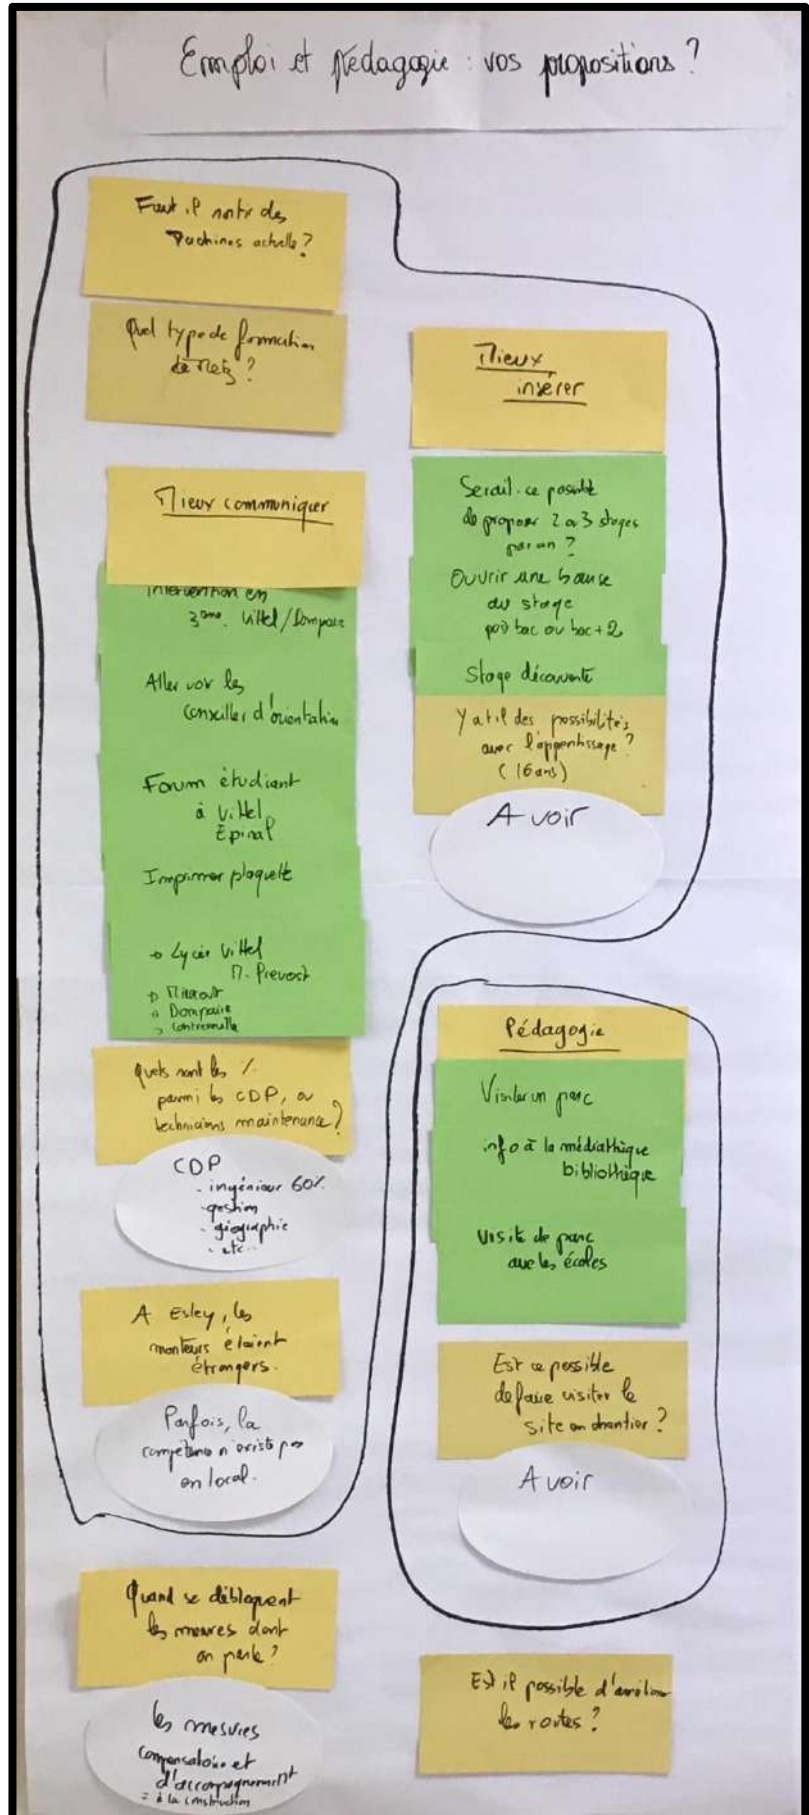 Emploi et pédagogie : vos propositions ?
Faut il des
machines actuelle ?
Quel type de formation
de Metz ?
Mieux communiquer
intervention en
3ème. Vittel / Dompaire
Aller voir les
conseiller d'orientation
Forum étudiant
à Vittel
Épinal
Imprimer plaquette
→ Lycée Vittel
M. Prevost
→ Dompaire
→ Contrexeville
Quels sont les %
parmi les CDP, ou
techniciens maintenance ?
CDP
- ingénieur 60%.
- gestion
- géographie
- etc...
A Esley, les
monteurs étaient
étrangers.
Parfois, la
compétence n'existe pas
en local.
Quand se débloquent
les mesures dont
on parle ?
les mesures
compensatoire et
d'accompagnement
= à la construction
Mieux
insérer
Serait-ce possible
de proposer 2 a 3 stages
par an ?
Ouvrir une bourse
au stage
post bac ou bac + 2
Stage découverte
Y a t il des possibilités
avec l'apprentissage ?
(16 ans)
A voir
Pédagogie
Visiter un parc
info à la médiathèque
bibliothèque
Visite de parc
avec les écoles
Est ce possible
de faire visiter le
site en chantier ?
A voir
Est il possible d'améliorer
les routes ?